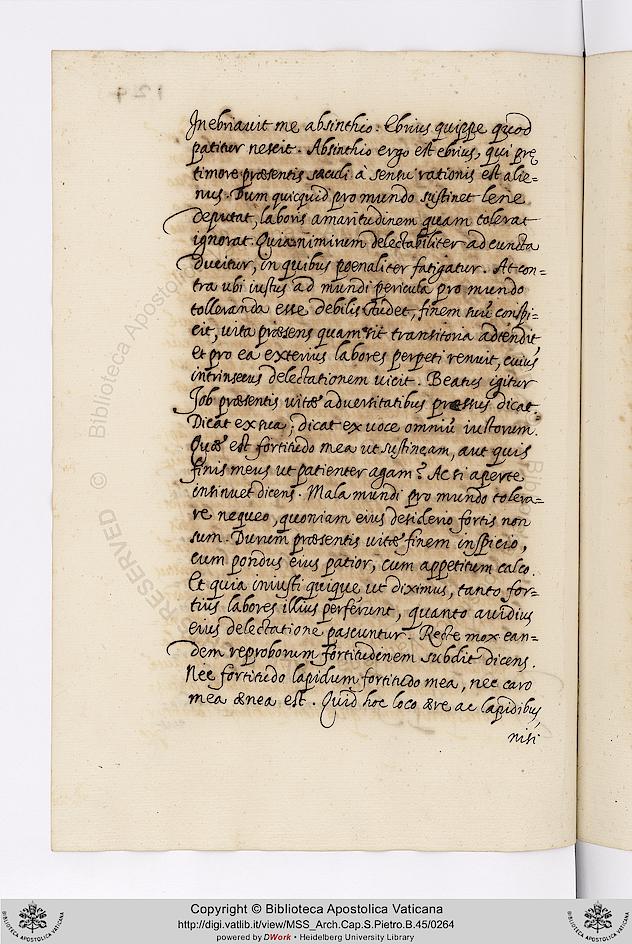 Inebriauit me absinthio. Ebrius quippe quod
patitur nescit. Absinthio ergo est ebrius, qui prę
timore præsentis sæculi a sensu rationis est alie=
nus. Dum quicquid pro mundo sustinet lene
deputat, laboris amaritudinem quam tolerat
ignorat. Quia nimirum delectabiliter ad cuncta
ducitur, in quibus poenaliter fatigatur. At con=
tra ubi iustus ad mundi pericula pro mundo
tolleranda esse debilis studet, finem suū conspi=
cit, uita præsens quam sit transitoria adtendit,
et pro ea exterius labores perpeti renuit, cuius
intrinsecus delectationem uicit. Beatus igitur
Job præsentis uitæ aduersitatibus pressus dicat.
Dicat ex sua; dicat ex uoce omniū iustorum.
Quæ est fortitudo mea ut sustineam, aut quis
finis meus ut patienter agam? Ac si aperte
insinuet dicens. Mala mundi pro mundo tolera=
re nequeo, quoniam eius desiderio fortis non
sum. Dum præsentis uitæ finem inspicio,
cum pondus eius patior, cum appetitum calco.
Et quia iniusti quique ut diximus, tanto for=
tius labores illius perferunt, quanto auidius
eius delectatione pascuntur. Recte mox ean=
dem reproborum fortitudinem subdit dicens.
Nec fortitudo lapidum fortitudo mea, nec caro
mea ænea est. Quid hoc loco ære ac lapidibus,
nisi
Copyright © Biblioteca Apostolica Vaticana
http://digi.vatlib.it/view/MSS_Arch.Cap.S.Pietro.B.45/0264
powered by DWork • Heidelberg University Library